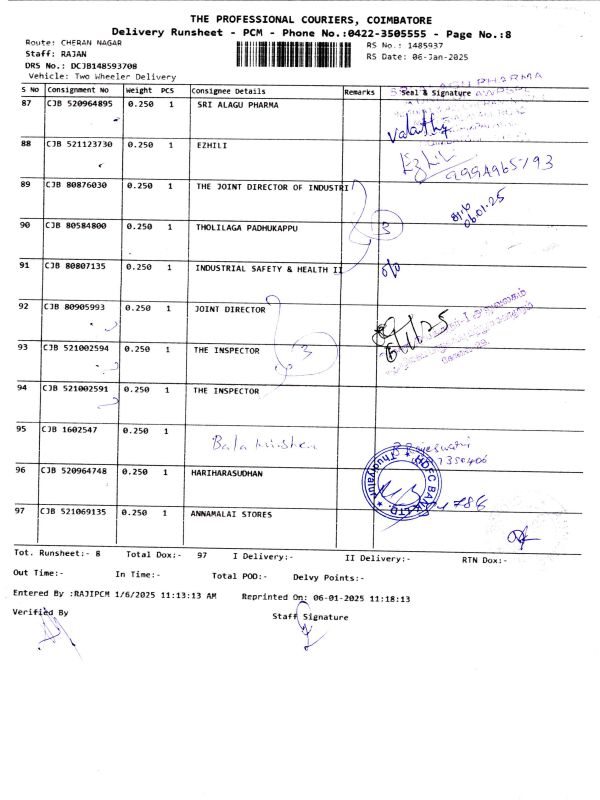 THE PROFESSIONAL COURIERS, COIMBATORE
Delivery Runsheet - PCM - Phone No.:0422-3505555 - Page No.:8
Route: CHERAN NAGAR
RS No.: 1485937
Staff: RAJAN
RS Date: 06-Jan-2025
DRS No.: DCJB148593708
Vehicle: Two Wheeler Delivery
S No Consignment No Weight PCS Consignee Details Remarks Seal & Signature
87 CJB 520964895 0.250 1 SRI ALAGU PHARMA
88 CJB 521123730 0.250 1 EZHILI Ezhil
9994965793
89 CJB 80876030 0.250 1 THE JOINT DIRECTOR OF INDUSTRI
06.01.25
90 CJB 80584800 0.250 1 THOLILAGA PADHUKAPPU 3
91 CJB 80807135 0.250 1 INDUSTRIAL SAFETY & HEALTH II
92 CJB 80905993 0.250 1 JOINT DIRECTOR
93 CJB 521002594 0.250 1 THE INSPECTOR 3
94 CJB 521002591 0.250 1 THE INSPECTOR
95 CJB 1602547 0.250 1
96 CJB 520964748 0.250 1 HARIHARASUDHAN HDFC BANK LTD.
97 CJB 521069135 0.250 1 ANNAMALAI STORES
Tot. Runsheet:- 8 Total Dox:- 97 I Delivery:- II Delivery:- RTN Dox:-
Out Time:- In Time:- Total POD:- Delvy Points:-
Entered By :RAJIPCM 1/6/2025 11:13:13 AM Reprinted On: 06-01-2025 11:18:13
Verified By Staff Signature